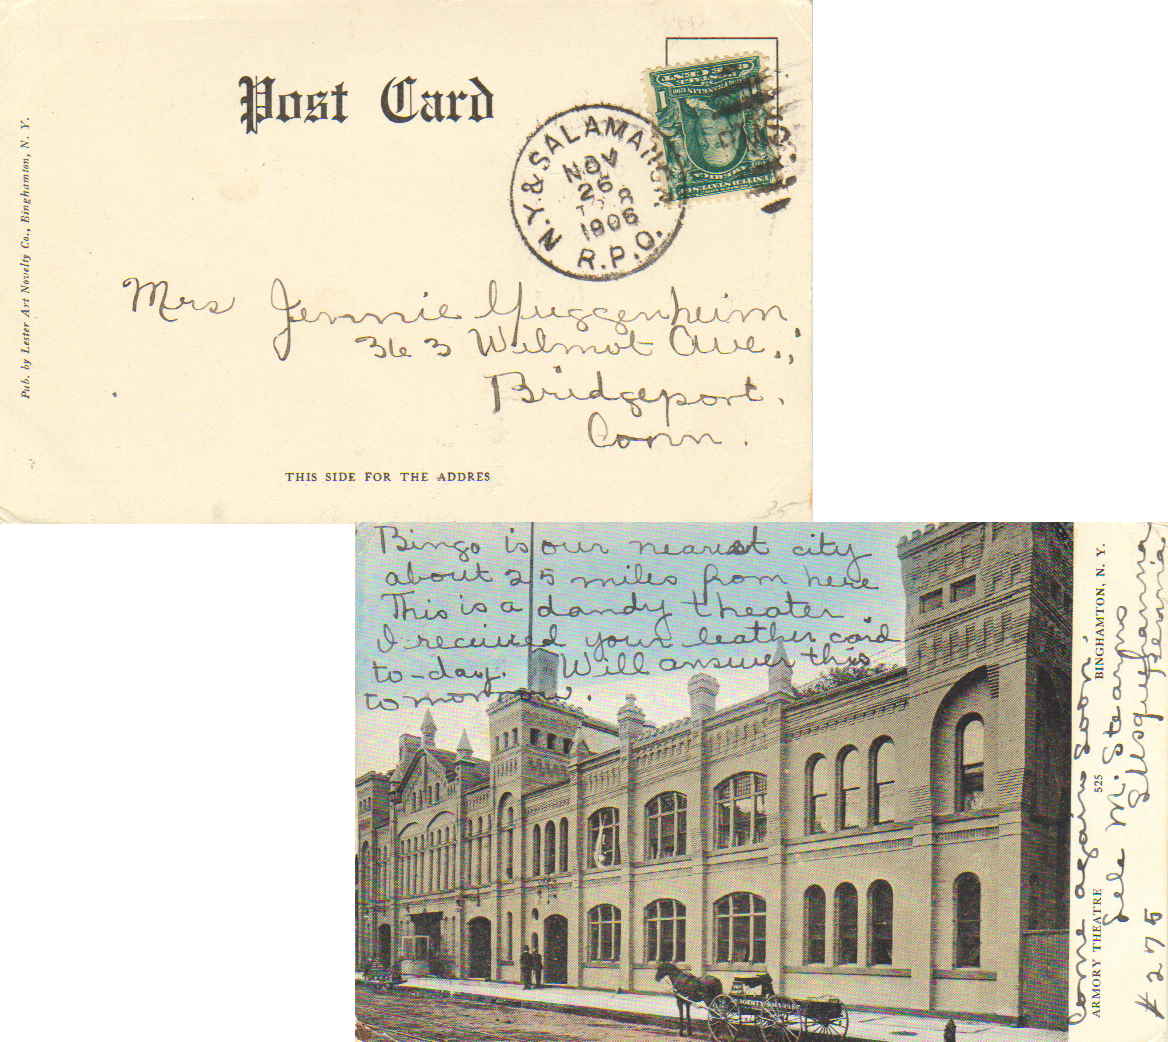 Post Card
N.Y. & SALAMANCA
NOV
26
1906
R.P.O.
1
Pub. by Lester Art Novelty Co., Binghamton, N. Y.
Mrs Jennie Guggenheim
363 Wilmot Ave.,
Bridgeport.
Conn.
THIS SIDE FOR THE ADDRES
Bingo is our nearest city
about 25 miles from here
This is a dandy theater
I received your leather card
to-day. Will answer this
tomorrow.
Come again soon
ARMORY THEATRE 525 BINGHAMTON, N. Y.
M. Stearns
# 275 Susquehanna
Penna